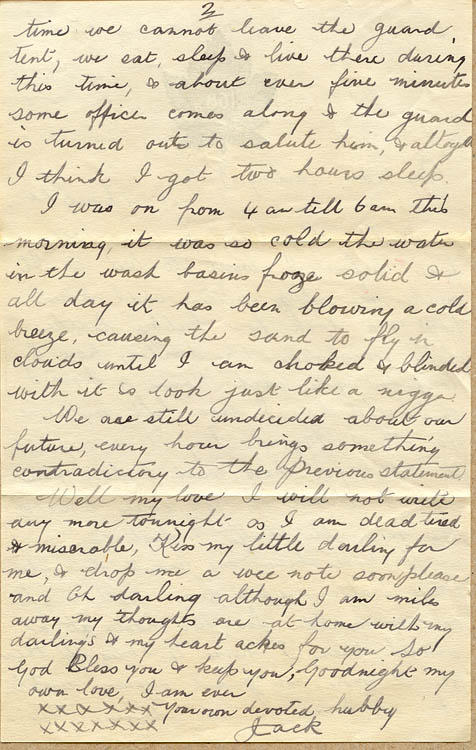 2
time we cannot leave the guard
tent, we eat, sleep & live there during
this time, & about ever five minutes
some officer comes along & the guard
is turned outs to salute him, & altogth
I think I got two hours sleep.
I was on from 4 am till 6 am this
morning, it was so cold the water
in the wash basins froze solid &
all day it has been blowing a cold
breeze, causing the sand to fly in
clouds until I am choked & blinded
with it & look just like a nigga
We are still undecided about our
future, every hour brings something
contradictory to the previous statement
Well my love I will not write
any more tonnight as I am dead tired
& miserable, Kiss my little darling for
me, & drop me a wee note soon please
and Oh darling although I am miles
away my thoughts are at home with my
darlings & my heart aches for you so
God Bless you & keep you, Goodnight my
own love, I am ever
x x x x x x Your own devoted hubby
x x x x x x x Jack